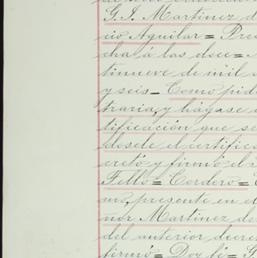 G. J. Martinez d
cio Aguilar = Pre
cha á las doce =
tinueve de mil
y seis - Como pid
traria, y hágase
tificación que se
desde el certific
cretó y firmó el
Tello = Cordero =
aro, presente en el
ñor Martinez de
del anterior decre
firmó = Doy fé =